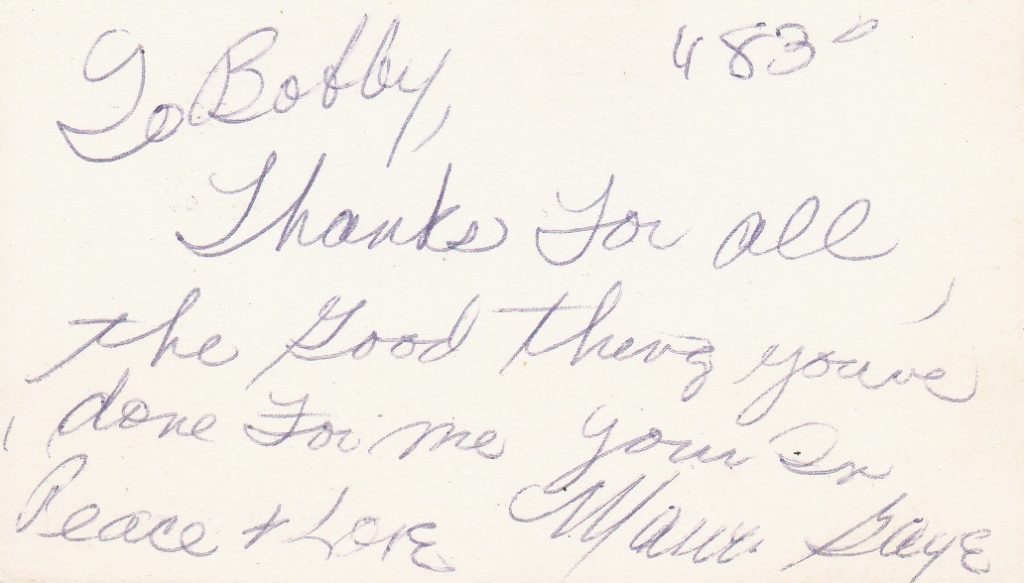 To Bobby, "483"
Thanks For all
the Good thing you've
done For me your In
Peace + Love Marvin Gaye